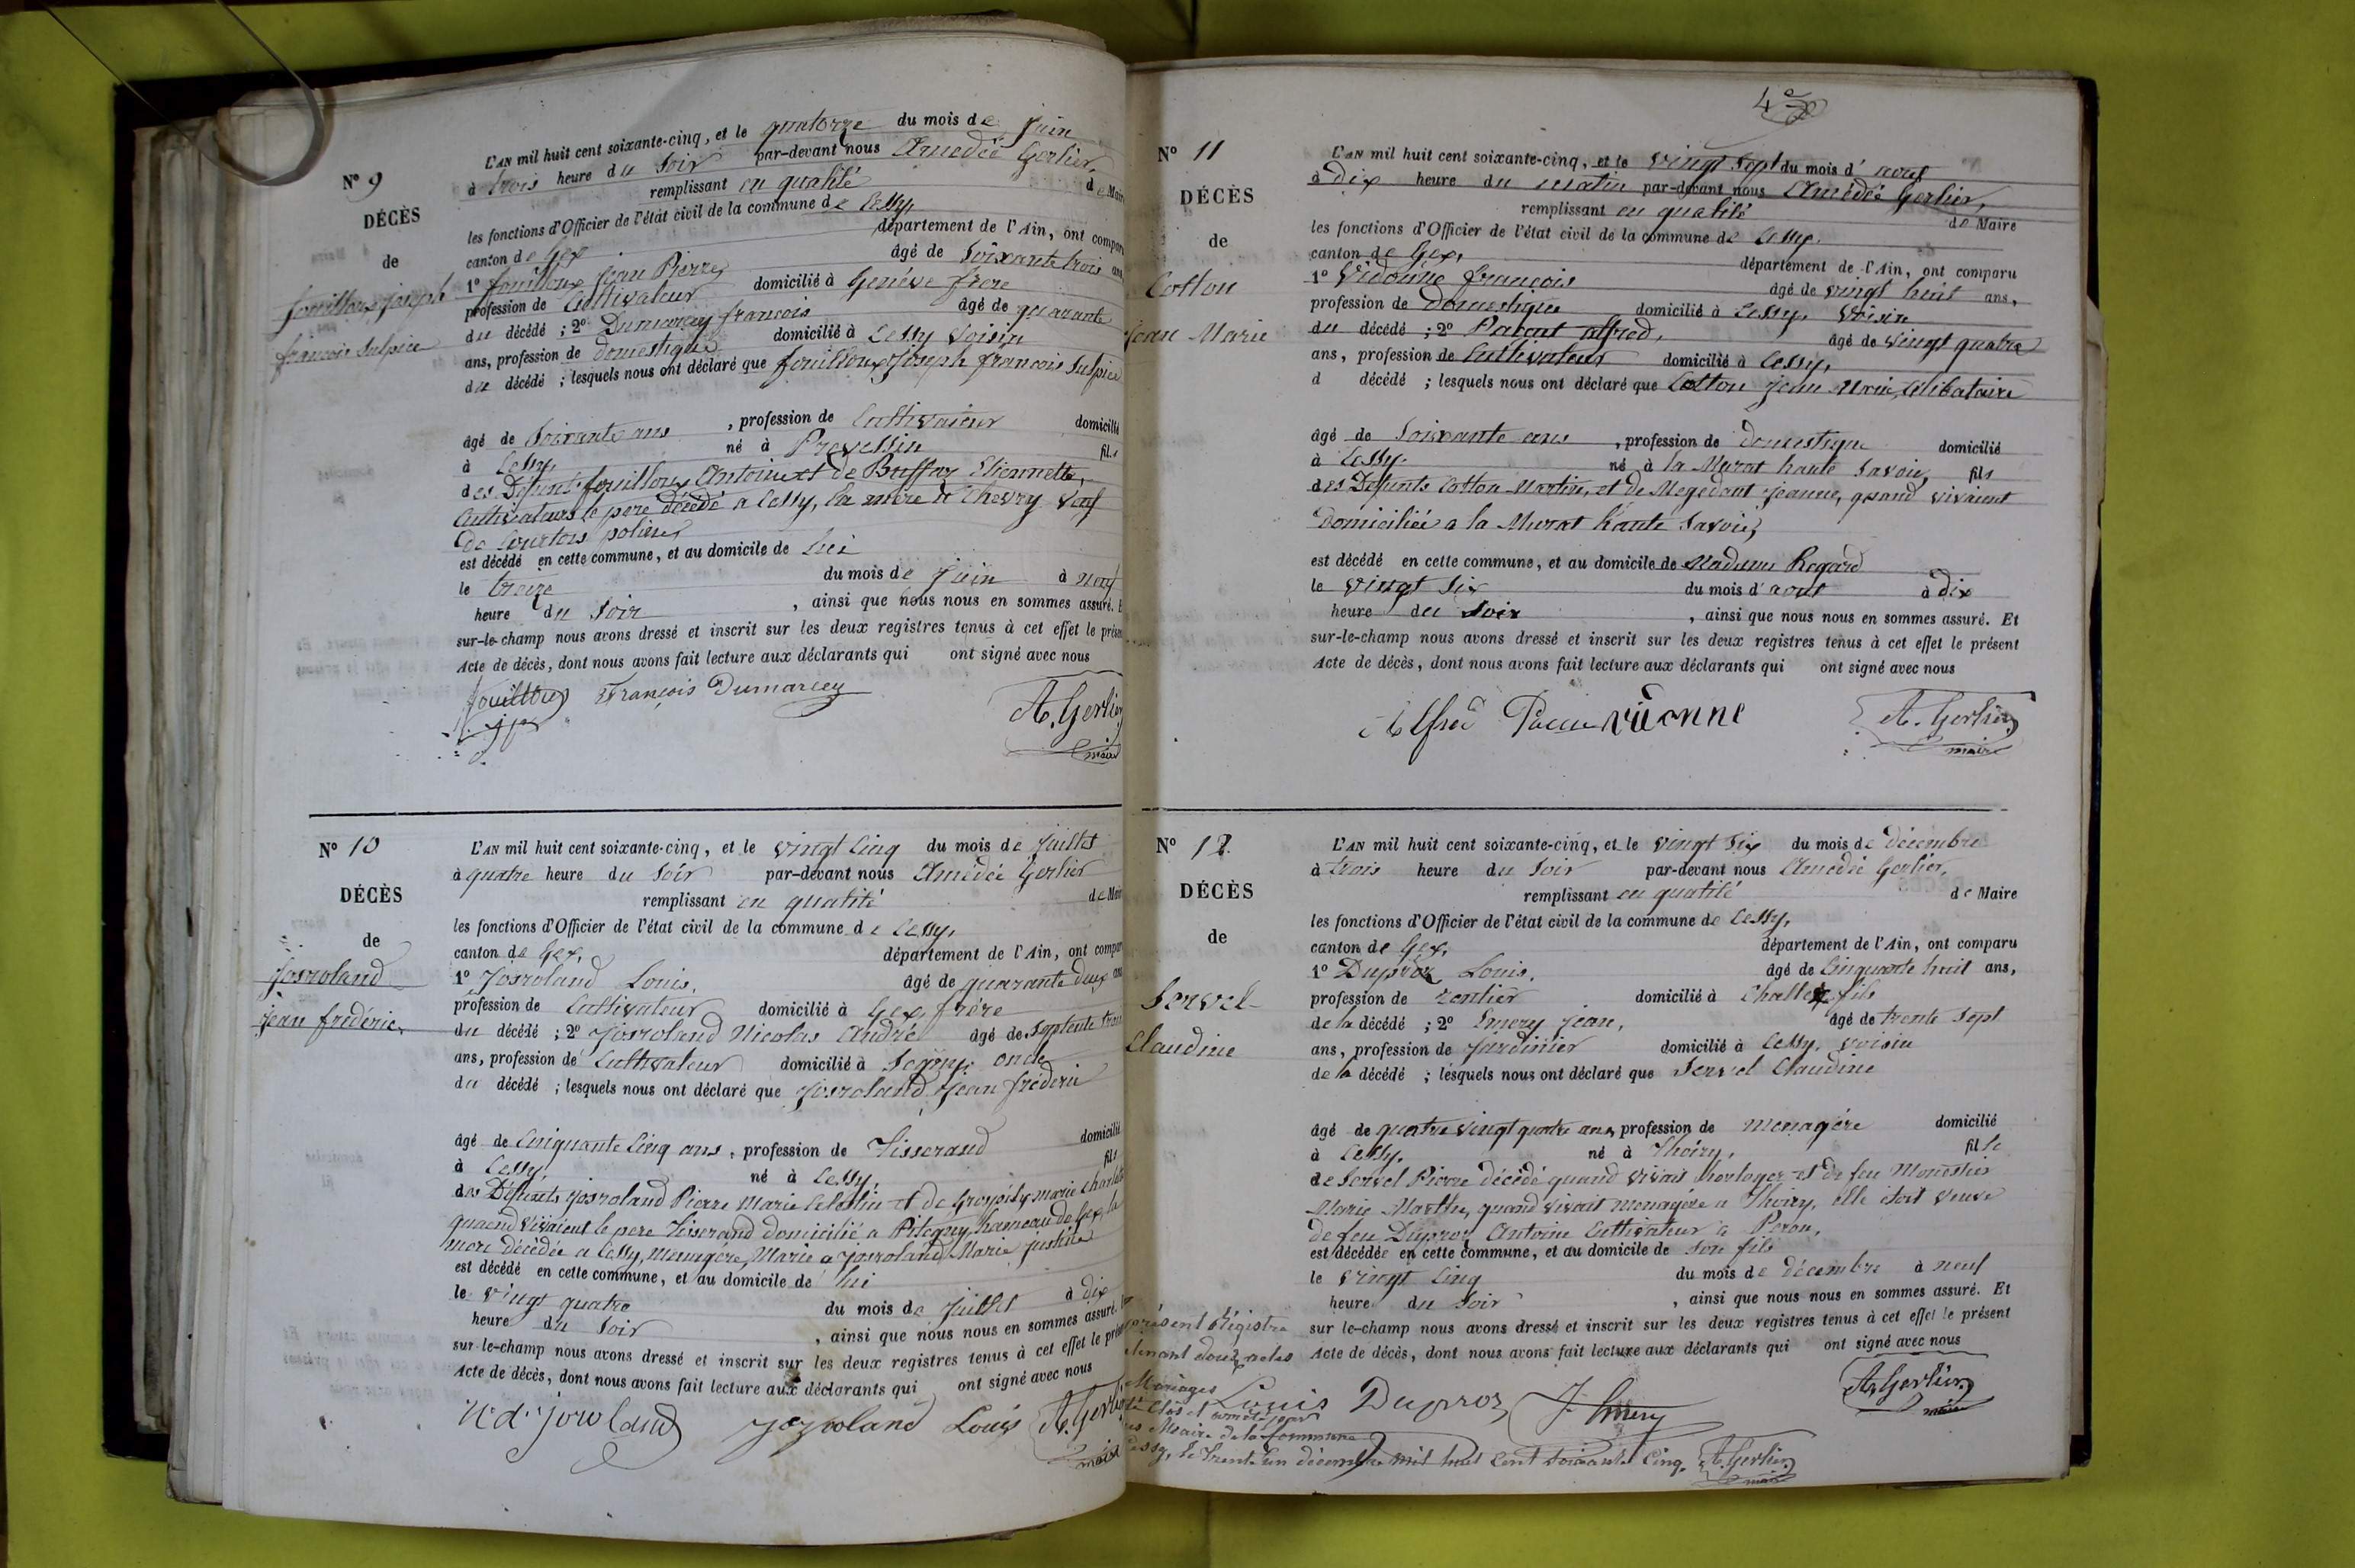 N° 9
DÉCÈS
de
fouilloux joseph
françois Sulpice
L'AN mil huit cent soixante-cinq, et le quatorze du mois de juin
à trois heure du Soir par-devant nous Amédée Gerlier,
remplissant en qualité de Maire
les fonctions d'Officier de l'état civil de la commune de Cessy,
canton de Gex département de l'Ain, ont comparu
1° fouilloux Jean Pierre âgé de Soixante trois ans
profession de Cultivateur domicilié à Genéve frere
du décédé ; 2° Dumarcey françois âgé de quarante
ans, profession de domestique domicilié à Cessy Voisin
du décédé ; lesquels nous ont déclaré que fouilloux Joseph françois Sulpice
âgé de Soixante ans , profession de Cultivateur domicilié
à Cessy, né à Prevessin fils
des Défunts fouilloux Antoine et de Buffaz Etiennette,
Cultivateurs le pere décédé a Cessy, la mère à Chevry Veuf
de Courtois
est décédé en cette commune, et au domicile de lui
le treize du mois de Juin à neuf
heure du Soir , ainsi que nous nous en sommes assuré. E
sur-le-champ nous avons dressé et inscrit sur les deux registres tenus à cet effet le présen
Acte de décès, dont nous avons fait lecture aux déclarants qui ont signé avec nous
fouilloux François Dumarcey A. Gerlier
jp maire
N° 10
DÉCÈS
de
Josroland
jean frédéric,
L'AN mil huit cent soixante-cinq, et le vingt Cinq du mois de Juillet
à quatre heure du Soir par-devant nous Amédée Gerlier
remplissant en qualité de Mai
les fonctions d'Officier de l'état civil de la commune de Cessy,
canton de Gex, département de l'Ain, ont compar
1° Josroland Louis, âgé de quarante deux ans
profession de Cultivateur domicilié à Gex, frère
du décédé ; 2° Josroland Nicolas André âgé de Septente trois
ans, profession de Cultivateur domicilié à Segny, oncle
du décédé ; lesquels nous ont déclaré que Josroland Jean frédéric
âgé de Cinquante Cinq ans , profession de Tisserand domicilié
à Cessy né à Cessy, fils
des Défunts Josroland Pierre Marie Celestin et de marie charlotte
quand vivaient le pere Tisserand domicilié a Pitegny, hameau de Gex, la
mere décédée a Cessy, menagére, Marie a Josroland Marie justine
est décédé en cette commune, et au domicile de lui
le vingt quatre du mois de Juillet à dix
heure du Soir , ainsi que nous nous en sommes assuré.
sur-le-champ nous avons dressé et inscrit sur les deux registres tenus à cet effet le prés
Acte de décès, dont nous avons fait lecture aux déclarants qui ont signé avec nous
Josroland Louis A. Gerlier
maire
4e
N° 11
DÉCÈS
de
Cotton
jean Marie
L'AN mil huit cent soixante-cinq, et le vingt Sept du mois d' aout
à Dix heure du matin par-devant nous Amédée Gerlier,
remplissant en qualité de Maire
les fonctions d'Officier de l'état civil de la commune de Cessy,
canton de Gex, département de l'Ain, ont comparu
1° Vidonne françois âgé de vingt huit ans,
profession de domestique domicilié à Cessy, Voisin
du décédé ; 2° alfred, âgé de vingt quatre
ans, profession de Cultivateur domicilié à Cessy,
d décédé ; lesquels nous ont déclaré que Cotton jean Marie, Célibataire
âgé de Soixante ans , profession de domestique domicilié
à Cessy. né à la Murat haute Savoie, fils
des Défunts Cotton Martin, et de Megedant Jeanne, quand vivaient
domiciliée a la Murat haute Savoie,
est décédé en cette commune, et au domicile de Madame Regard
le vingt Six du mois d'aout à dix
heure du Soir , ainsi que nous nous en sommes assuré. Et
sur-le-champ nous avons dressé et inscrit sur les deux registres tenus à cet effet le présent
Acte de décès, dont nous avons fait lecture aux déclarants qui ont signé avec nous
Alfred A. Gerlier
maire
N° 12
DÉCÈS
de
Servel
Claudine
L'AN mil huit cent soixante-cinq, et le vingt Six du mois de décembre
à trois heure du Soir par-devant nous Amédée Gerlier,
remplissant en qualité de Maire
les fonctions d'Officier de l'état civil de la commune de Cessy,
canton de Gex, département de l'Ain, ont comparu
1° Duproz Louis, âgé de Cinquante huit ans,
profession de rentier domicilié à Challex, fils
de la décédé ; 2° Emery jean, âgé de trente Sept
ans, profession de Jardinier domicilié à Cessy, voisin
de la décédé ; lesquels nous ont déclaré que Servel Claudine
âgé de quatre vingt quatre ans, profession de menagére domicilié
à Cessy, né à Thoiry, fille
de Servel Pierre décédé quand vivait horloger et de feu Monestier
Marie Marthe, quand vivait menagére a Thoiry, elle était Veuve
de feu Duproz Antoine Cultivateur a Peron,
est décédée en cette commune, et au domicile de Son fils
le vingt Cinq du mois de décembre à neuf
heure du Soir , ainsi que nous nous en sommes assuré. Et
sur le-champ nous avons dressé et inscrit sur les deux registres tenus à cet effet le présent
Acte de décès, dont nous avons fait lecture aux déclarants qui ont signé avec nous
Louis Duproz J. Emery A. Gerlier
maire
présent Régistre
tenant douze actes
Mariages
Clos et arrêté par
Maire de la Commune
Cessy, le trente un décembre mil huit Cent Soixante Cinq. A. Gerlier
maire